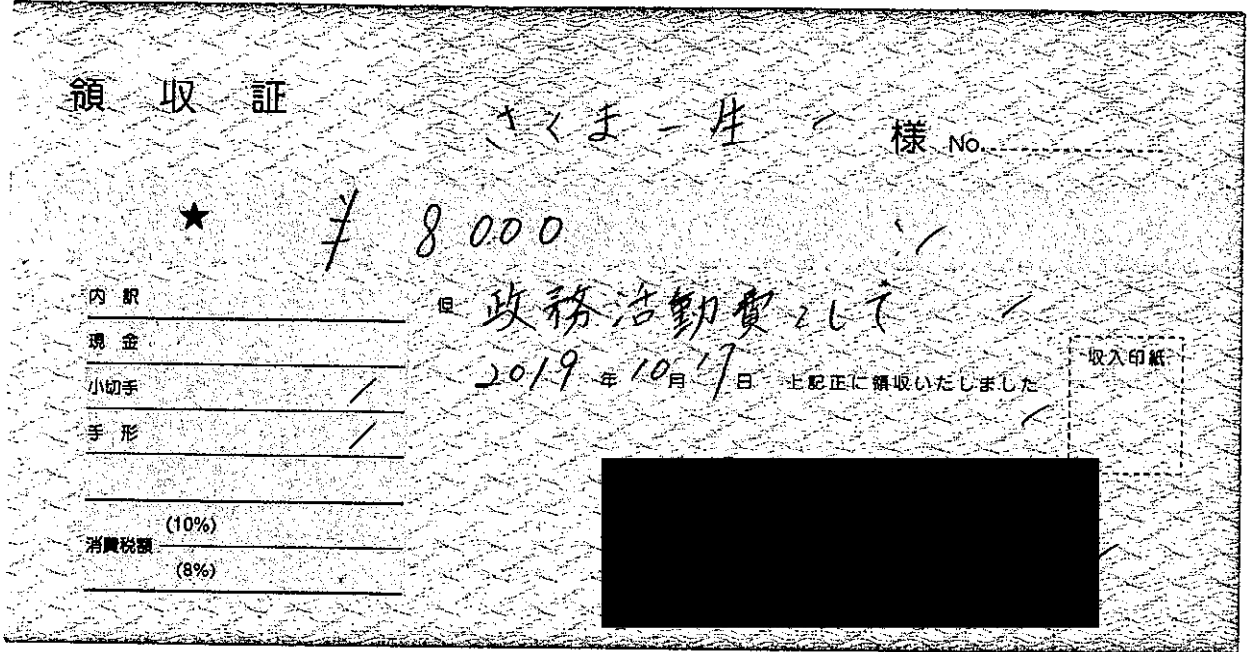 領収証
さくま一生 様 No.
★ ¥8000
但 政務活動費として
2019年10月17日 上記正に領収いたしました
収入印紙
内訳
現金
小切手 /
手形 /
消費税額 (10%)
(8%)